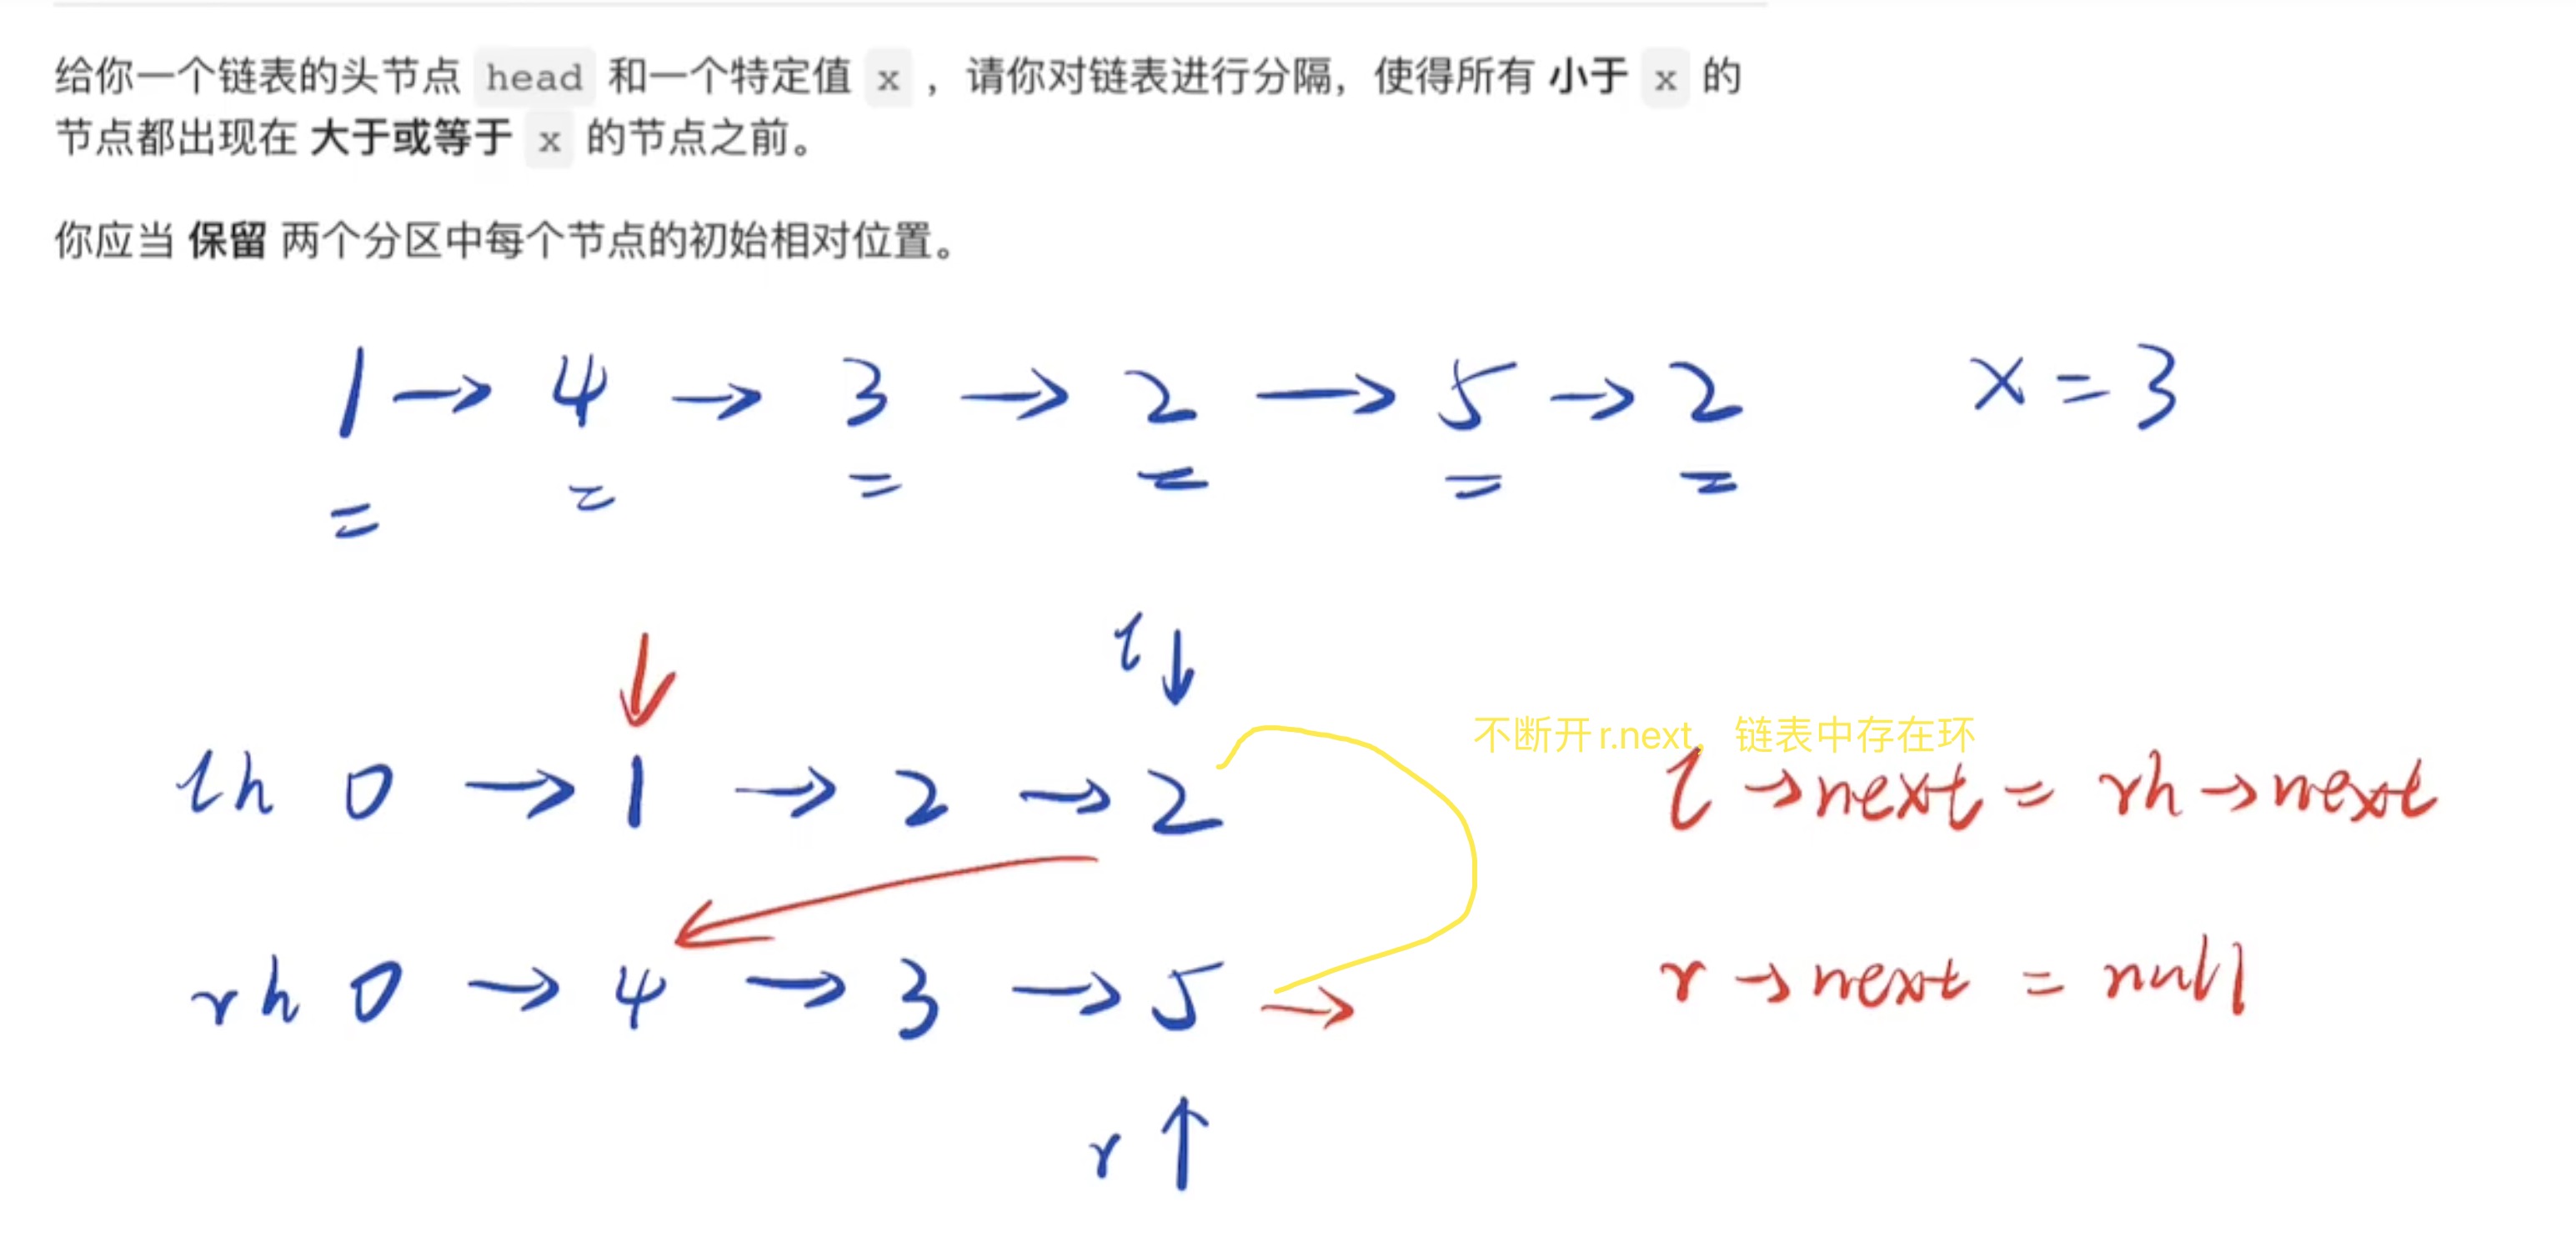 给你一个链表的头节点 head 和一个特定值 x ，请你对链表进行分隔，使得所有 小于 x 的
节点都出现在 大于或等于 x 的节点之前。
你应当 保留 两个分区中每个节点的初始相对位置。
1 → 4 → 3 → 2 → 5 → 2 x = 3
l ↓
不断开r.next，链表中存在环
lh 0 → 1 → 2 → 2 l → next = rh → next
rh 0 → 4 → 3 → 5 → r → next = null
r ↑